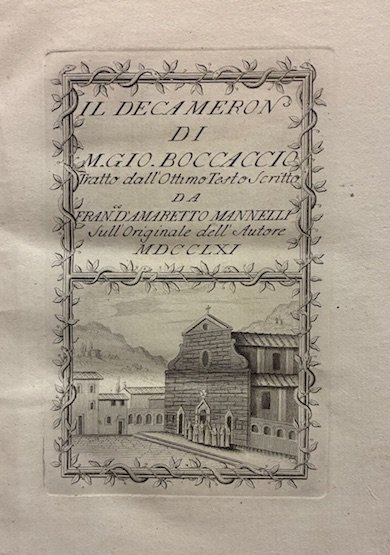 IL DECAMERON
DI
M. GIO. BOCCACCIO
Tratto dall'Ottimo Testo Scritto
DA
FRAN.º D'AMARETTO MANNELLI
Sull'Originale dell'Autore
MDCCLXI